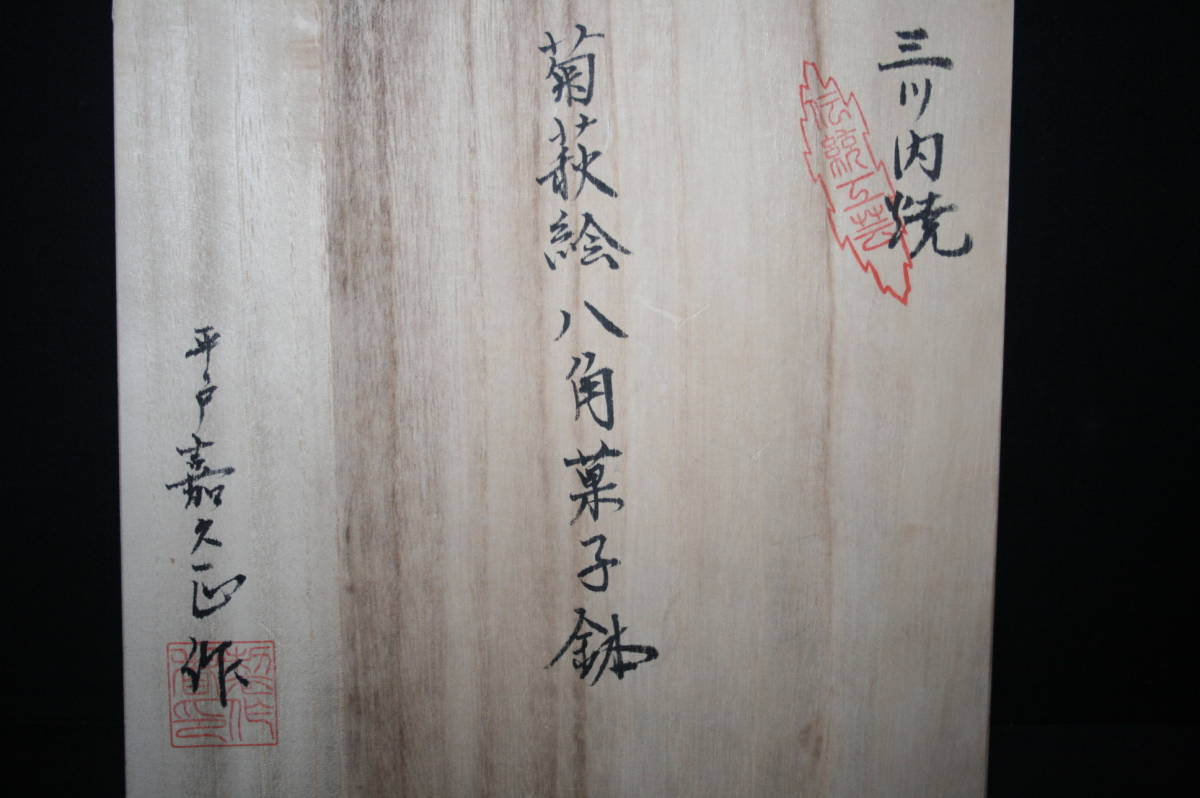 三川内焼
伝統工芸
菊萩絵八角菓子鉢
平戸嘉久正作